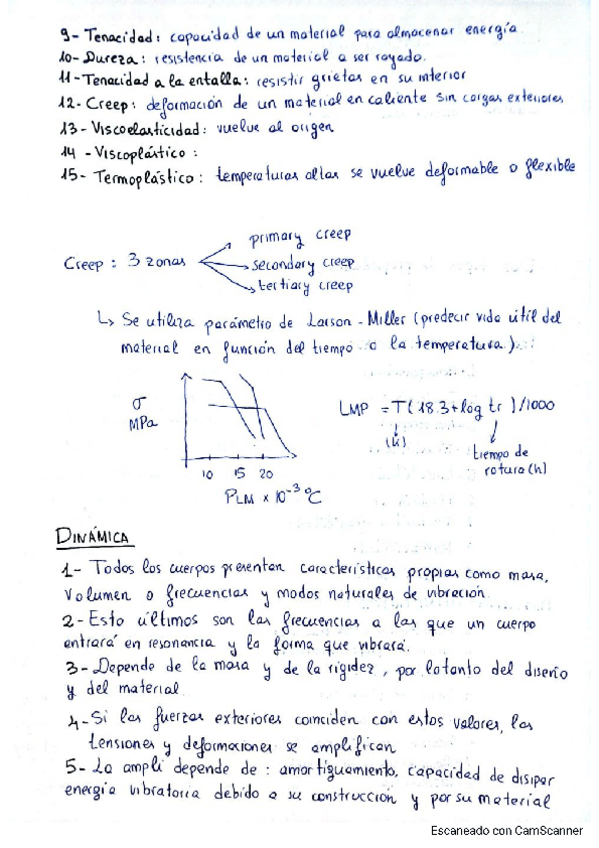 9- Tenacidad: capacidad de un material para almacenar energía.
10- Dureza: resistencia de un material a ser rayado.
11- Tenacidad a la entalla: resistir grietas en su interior
12- Creep: deformación de un material en caliente sin cargas exteriores
13- Viscoelasticidad: vuelve al origen
14 - Viscoplástico:
15- Termoplástico: temperaturas altas se vuelve deformable o flexible
Creep: 3 zonas
primary creep
secondary creep
tertiary creep
↳ Se utiliza parámetro de Larson-Miller (predecir vida útil del
material en función del tiempo o la temperatura).
σ
MPa
10 15 20
PLM x 10⁻³ °C
LMP = T(18.3+log tr)/1000
(k)
tiempo de
rotura (h)
DINÁMICA
1- Todos los cuerpos presentan características propias como masa,
volumen o frecuencias y modos naturales de vibración.
2- Esto últimos son las frecuencias a las que un cuerpo
entrará en resonancia y la forma que vibrará.
3- Depende de la masa y de la rigidez, por lo tanto del diseño
y del material.
4- Si las fuerzas exteriores coinciden con estos valores, las
tensiones y deformaciones se amplifican
5- La ampli depende de: amortiguamiento, capacidad de disipar
energía vibratoria debido a su construcción y por su material
Escaneado con CamScanner